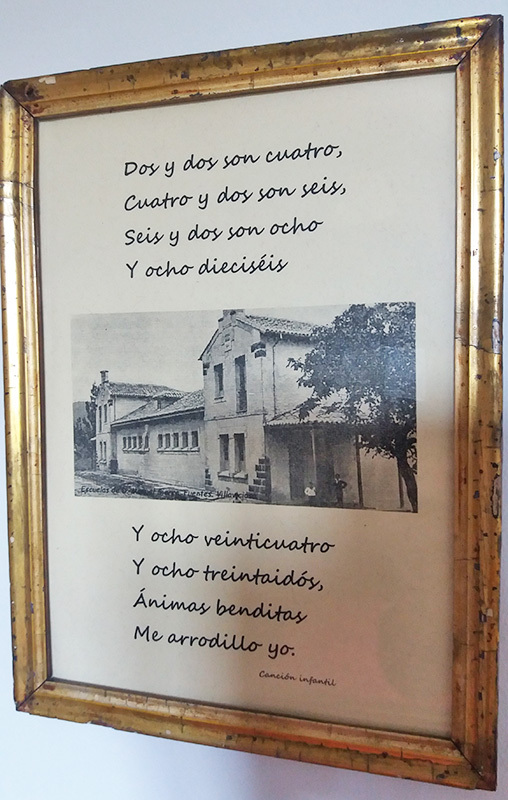 Dos y dos son cuatro,
Cuatro y dos son seis,
Seis y dos son ocho
Y ocho dieciséis
Escuelas de
Y ocho veinticuatro
Y ocho treintaidós,
Ánimas benditas
Me arrodillo yo.
Canción infantil